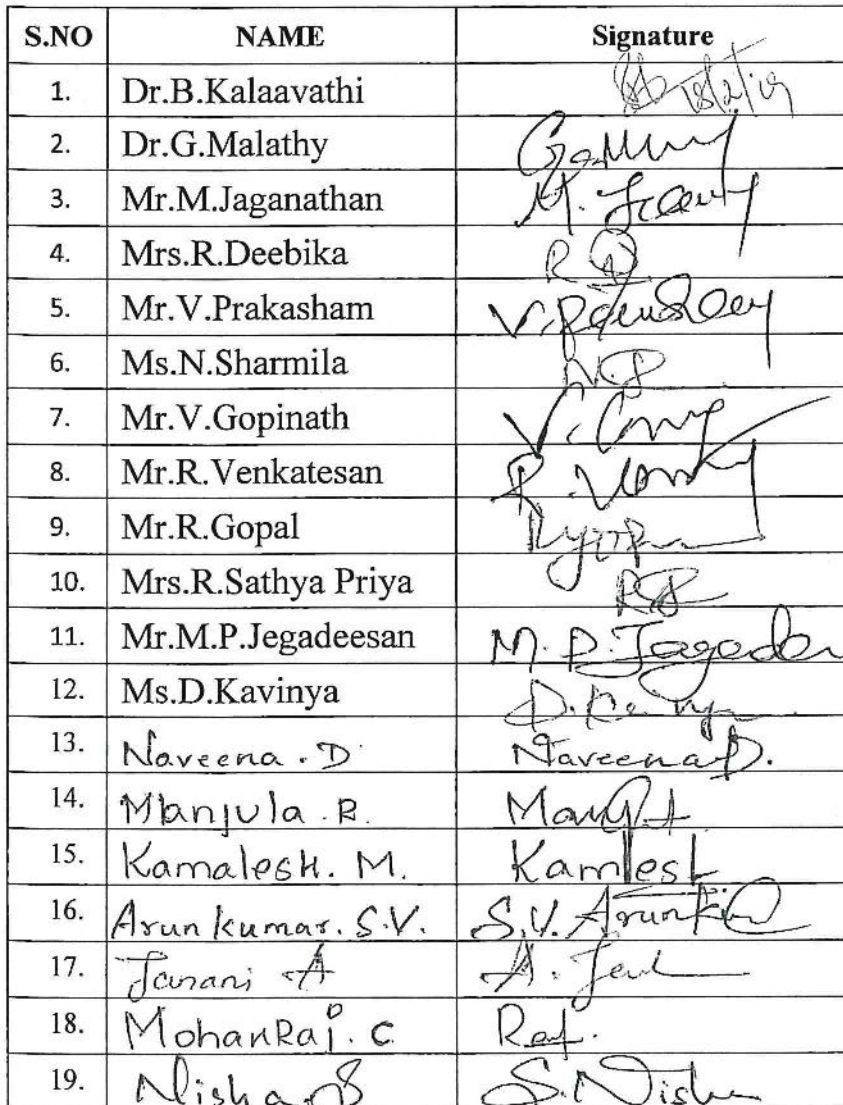 S.NO NAME Signature
1. Dr.B.Kalaavathi 18/2/19
2. Dr.G.Malathy
3. Mr.M.Jaganathan M.
4. Mrs.R.Deebika R
5. Mr.V.Prakasham V.
6. Ms.N.Sharmila
7. Mr.V.Gopinath V.
8. Mr.R.Venkatesan R.
9. Mr.R.Gopal
10. Mrs.R.Sathya Priya
11. Mr.M.P.Jegadeesan M.P.
12. Ms.D.Kavinya D.
13. Naveena.D Naveena D.
14. Manjula.R.
15. Kamalesh.M. Kamlesh
16. Arun kumar.S.V. S.V.
17. Janani A A.
18. MohanRaj.C
19. Nisha S S.